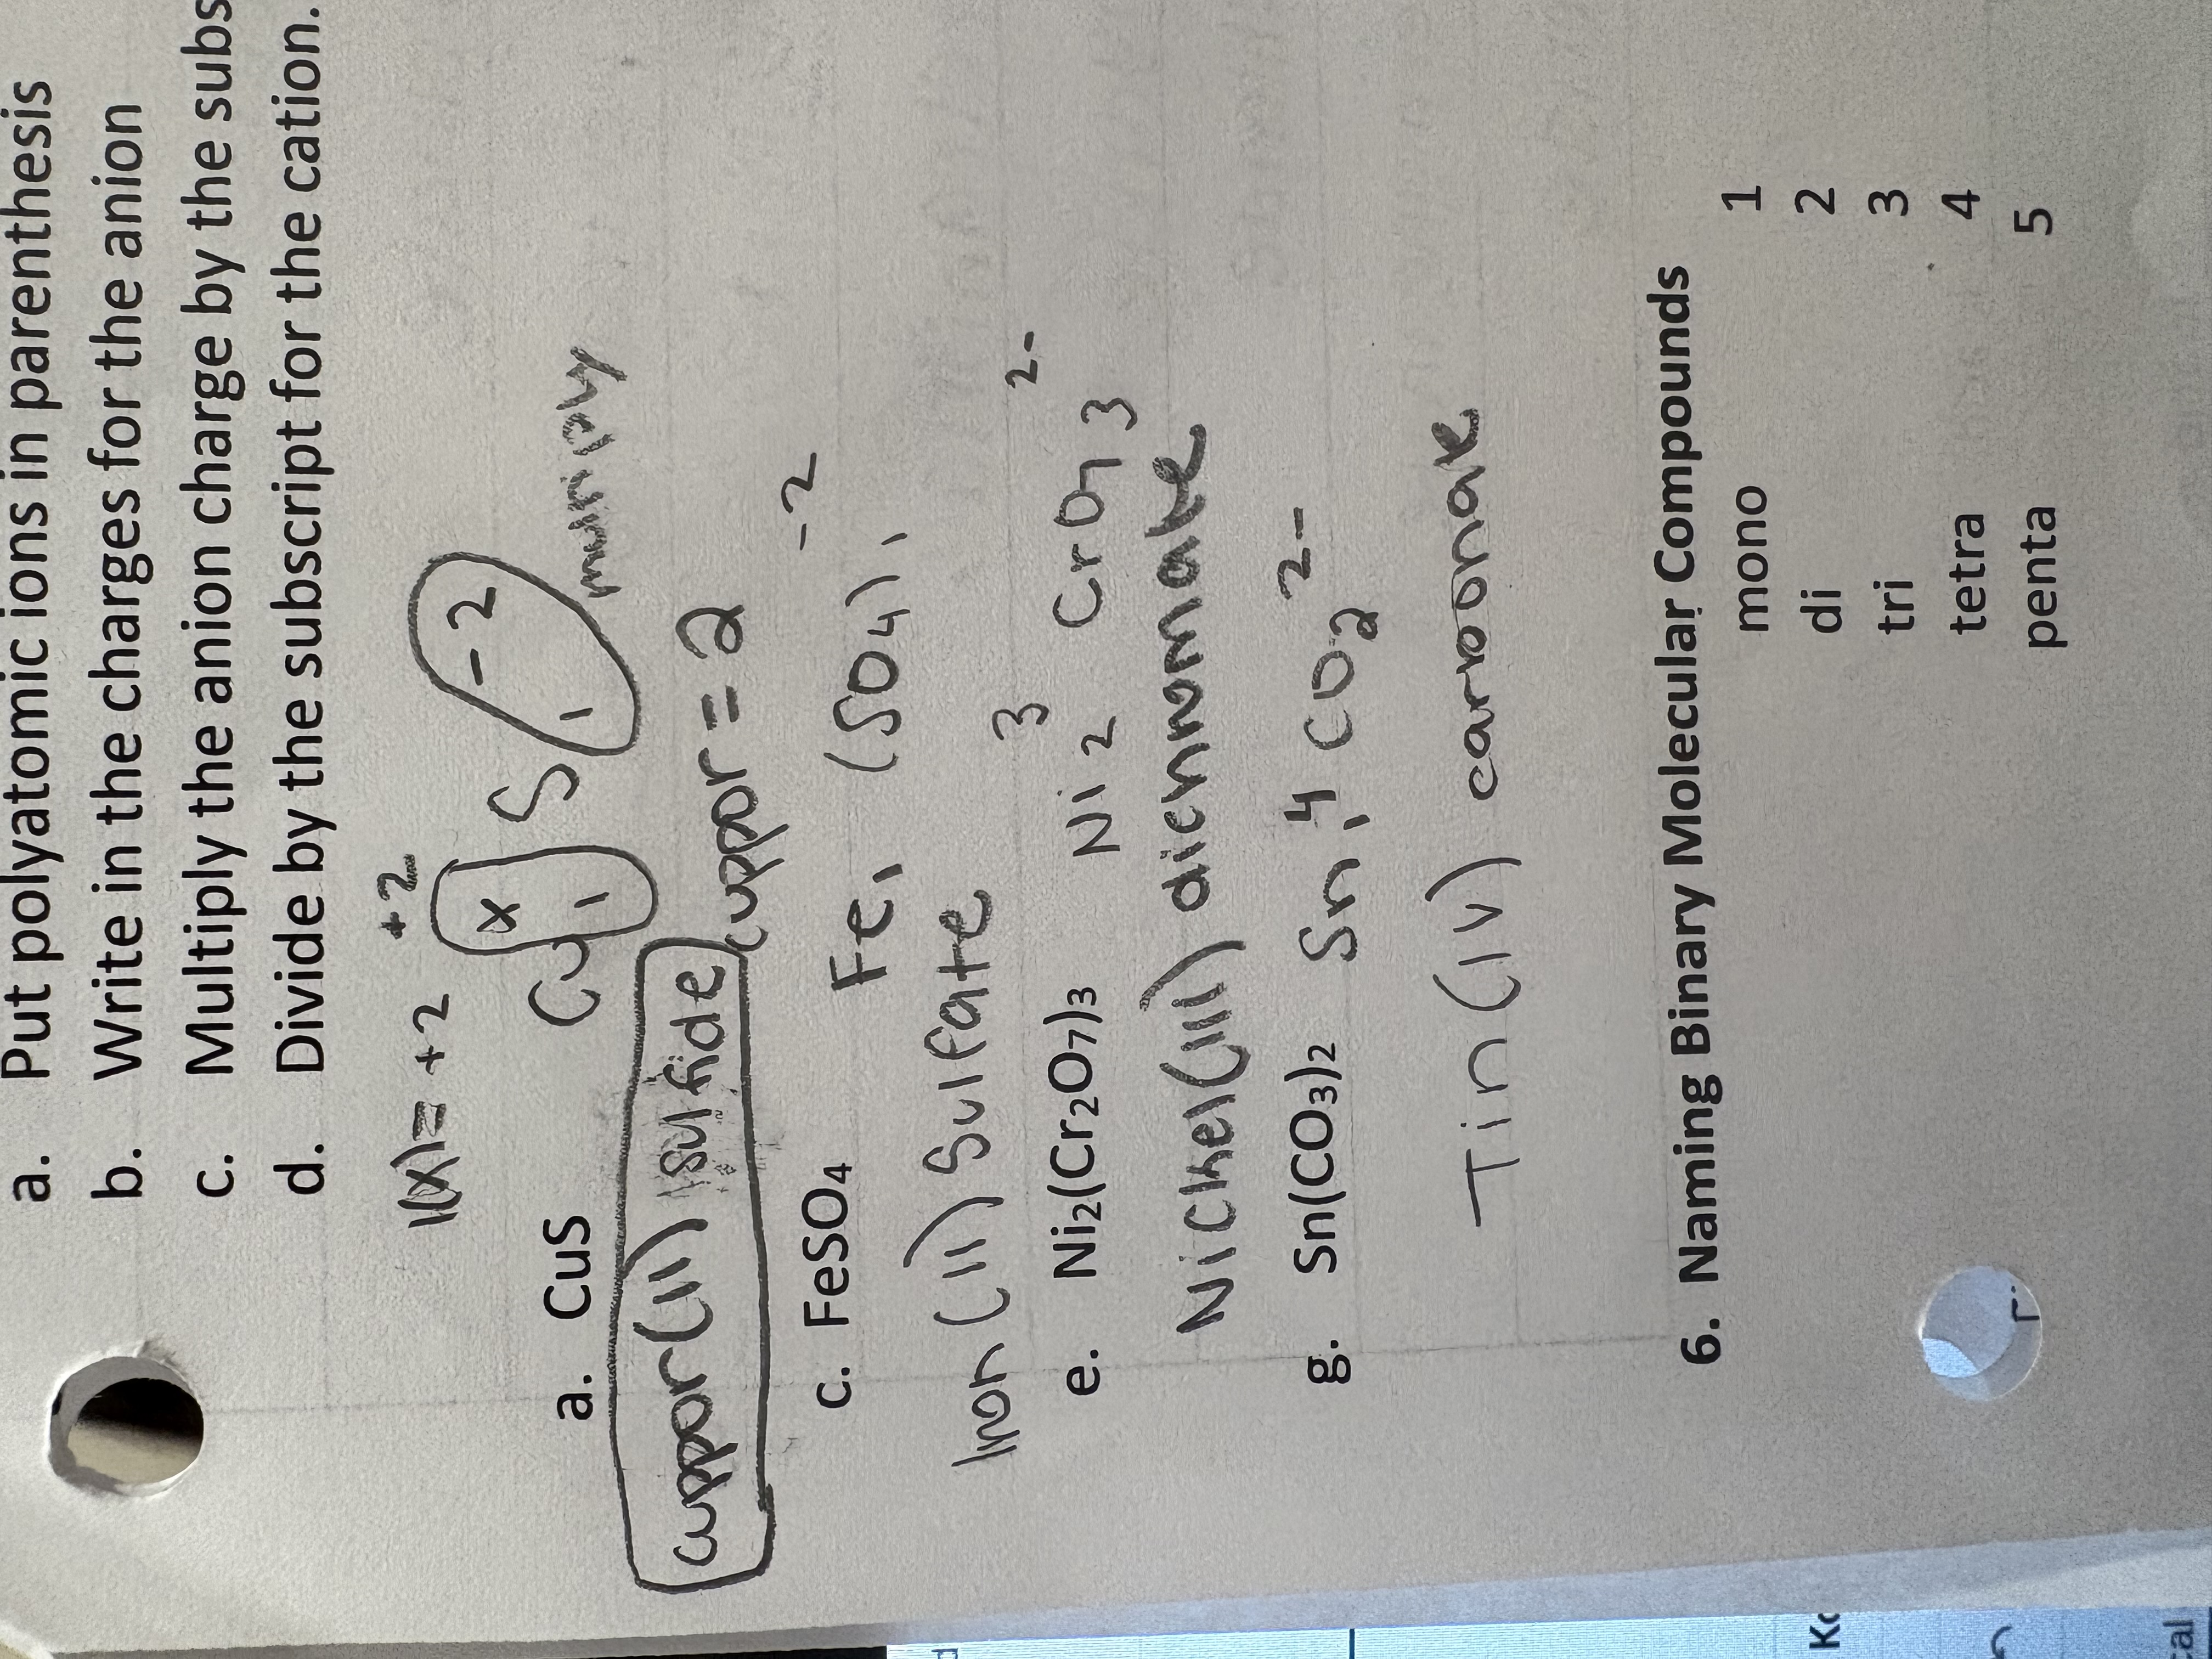 a. Put polyatomic ions in parenthesis
b. Write in the charges for the anion
c. Multiply the anion charge by the subs
d. Divide by the subscript for the cation.
1(x)= +2 +2
a. CuS Cu x 1 S 1 -2
multiply
cuppor(II) sulfide cuppor = 2
c. FeSO₄ Fe₁ (SO₄)₁ -2
Iron (II) Sulfate
e. Ni₂(Cr₂O₇)₃ Ni₂ 3 CrO₇ 3 2-
Nickel(III) dichromate
g. Sn(CO₃)₂ Sn₁ 4 CO₂ 2-
Tin (IV) carbonate
6. Naming Binary Molecular Compounds
mono 1
di 2
tri 3
tetra 4
penta 5